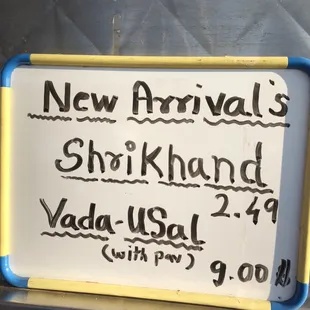 New Arrival's
Shrikhand
2.49
Vada-USal
(with pav)
9.00